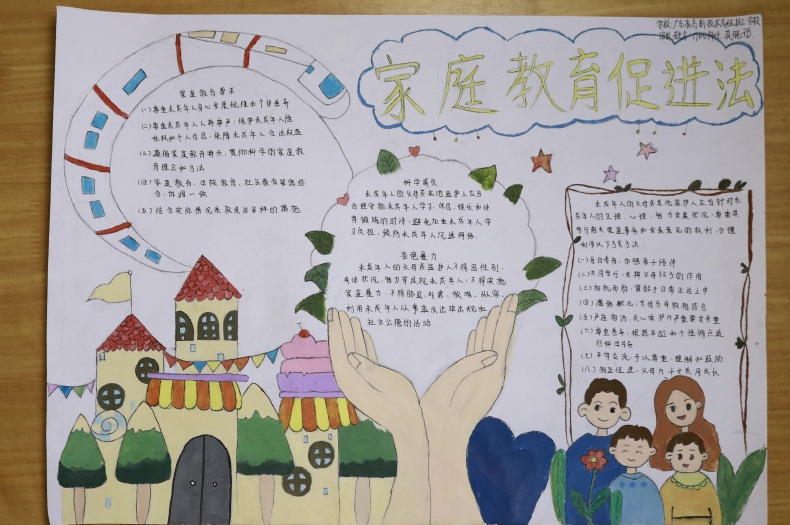 家庭教育促进法
家庭教育要求
(一)尊重未成年人身心发展规律和个体差异
(二)尊重未成年人人格尊严,保护未成年人隐
私权和个人信息,保障未成年人合法权益
(三)遵循家庭教育特点,贯彻科学的家庭教
育理念和方法
(四)家庭教育、学校教育、社会教育紧密结
合、协调一致
(五)结合实际情况采取灵活多样的措施
科学减负
未成年人的父母或其他监护人应当
合理安排未成年人学习、休息、娱乐和体
育锻炼的时间,避免加重未成年人学
习负担,预防未成年人沉迷网络。
拒绝暴力
未成年人的父母或监护人不得因性别,
身体状况、智力等歧视未成年人,不得实施
家庭暴力,不得胁迫、引诱、教唆、纵容、
利用未成年人从事违反法律法规和
社会公德的活动
未成年人的父母或其他监护人应当针对未
成年人的生理、心理、智力发展状况,尊重其
参与相关家庭事务和发表意见的权利,合理
利用以下方式方法:
(一)亲自养育,加强亲子陪伴
(二)共同参与,发挥父母双方的作用
(三)相机而教,寓教于日常生活之中
(四)潜移默化,言传与身教相结合
(五)严慈相济,关心爱护与严格要求并重
(六)尊重差异,根据年龄和个性特点进
行科学引导
(七)平等交流,予以尊重、理解和鼓励
(八)相互促进,父母与子女共同成长